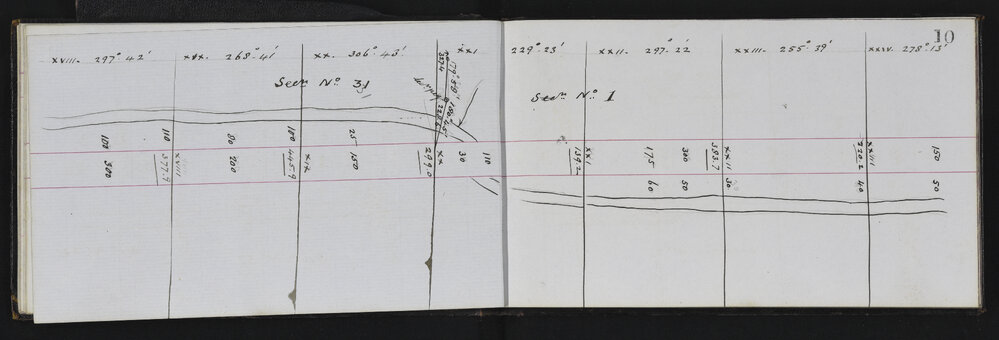 10
xviii. 297° 42'
xix. 268° 41'
xx. 306° 43'
xxi
229° 23'
xxii. 297° 22'
xxiii. 255° 39'
xxiv. 278° 13'
Secn No 31
Secn No 1
100 300
110 xviii 377.9
80 200
100 445.9 xix
25 150
xx 299.0
30
110
xxi 139.2
175 60
300 50
xxii 393.7 30
xxiii 220.2 40
150 50